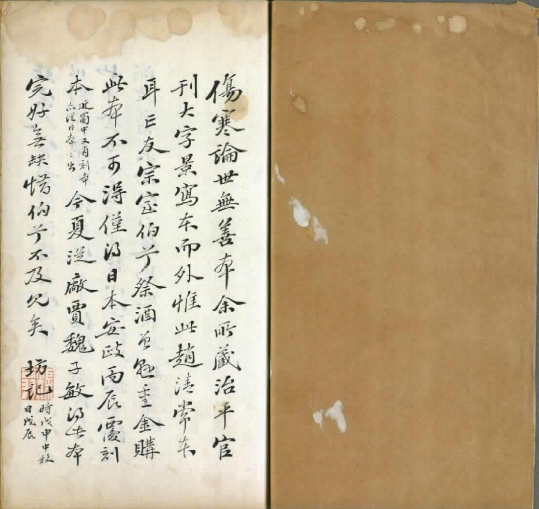 傷寒論世無善本余所藏治平官
刊大字景寫本而外惟此趙清常本
耳亡友宗室伯兮祭酒曾懸重金購
此本不可得僅得日本安政丙辰覆刻
本近蜀中又有刻本亦從日本出今夏從廠賈魏子敏得此本
完好無缺惜伯兮不及見矣 坊記
時戊申中秋
日戊辰